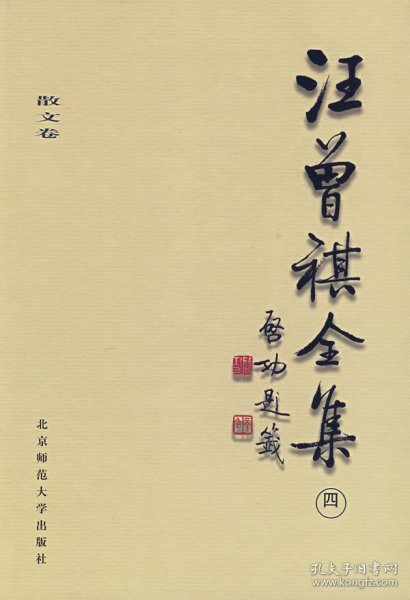 汪曾祺全集
四
启功题签
散文卷
北京师范大学出版社
孔夫子旧书网
www.kongfz.com